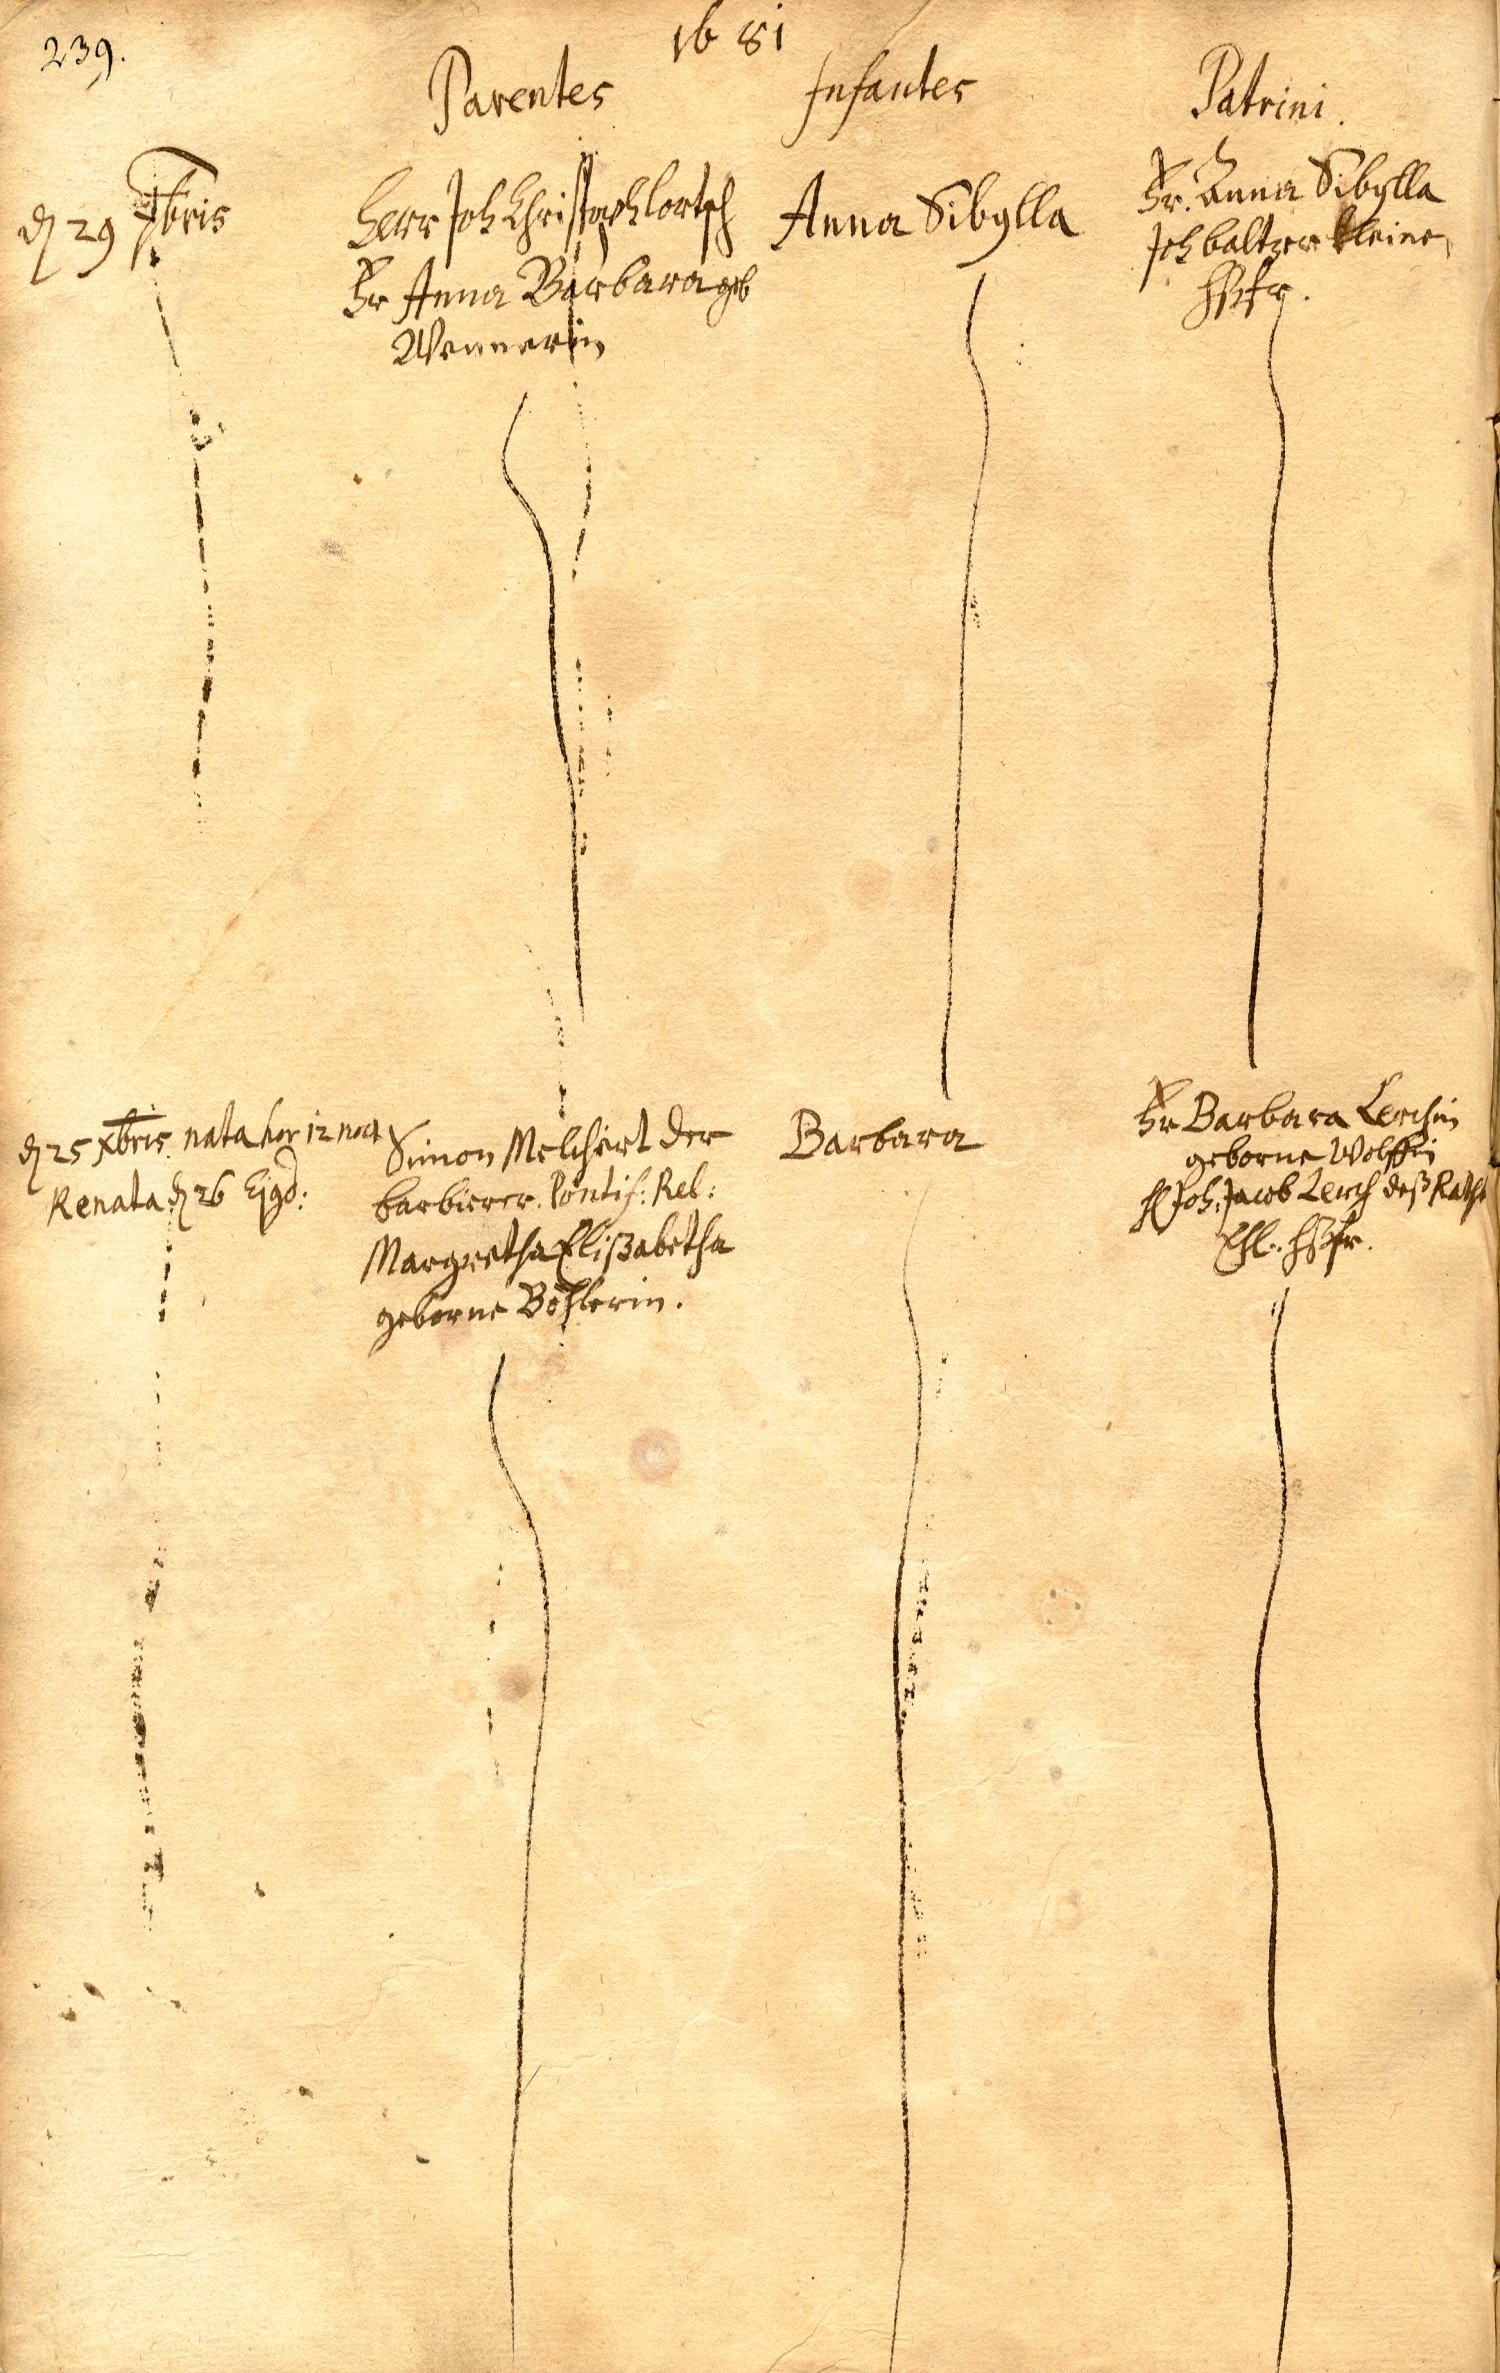 239.
1681
Parentes
Infantes
Patrini.
d 29 Xbris
Herr Joh Christoph Lortsch
Fr Anna Barbara geb
Wennerin
Anna Sibylla
Fr. Anna Sibylla
Joh baltzer Kleine,
Hßfr.
d 25 Xbris. nata hor 12 noct
Renata d 26 Ejgd:
Simon Melchert der
barbierer. Pontif: Rel:
Margretha Elißabetha
geborne Böhlerin.
Barbara
Fr Barbara Lerchin
geborne Wolffin
H Joh: Jacob Lerch deß Raths
Ehl. Hßfr.